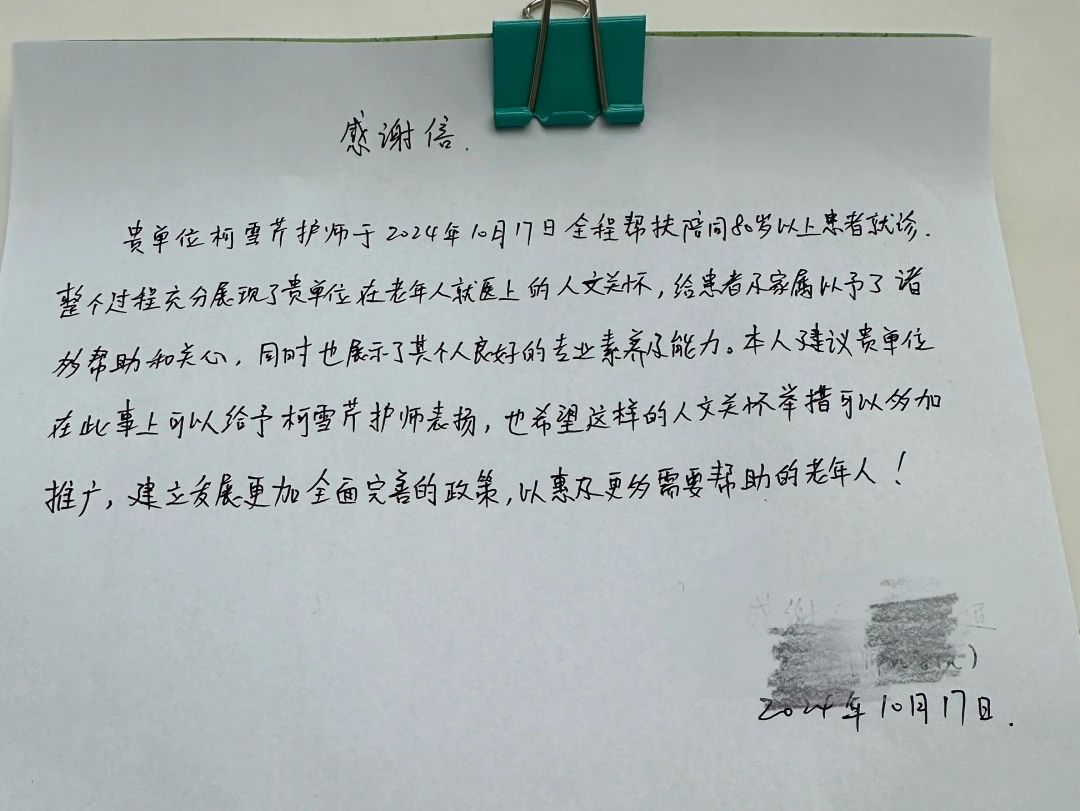 感谢信.
贵单位柯雪芹护师于2024年10月17日全程帮扶陪同80岁以上患者就诊.
整个过程充分展现了贵单位在老年人就医上的人文关怀,给患者及家属以予了诸
多帮助和关心,同时也展示了其个人良好的专业素养及能力。本人建议贵单位
在此事上可以给予柯雪芹护师表扬,也希望这样的人文关怀举措可以多加
推广,建立发展更加全面完善的政策,以惠及更多需要帮助的老年人!
感谢
2024年10月17日.